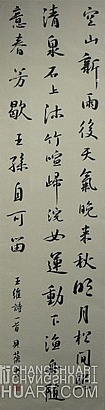 空山新雨後天氣晚来秋明月松間照
清泉石上流竹喧歸浣女蓮動下漁舟隨
意春芳歇王孫自可留
王維詩